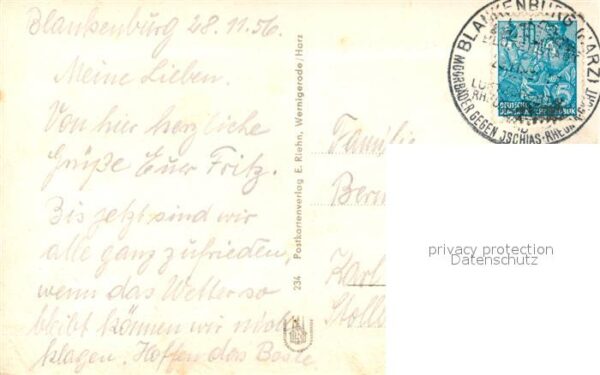 Blankenburg 28.11.56.
Meine Lieben.
Von hier herzliche
Grüße Euer Fritz.
Bis jetzt sind wir
alle ganz zufrieden,
wenn das Wetter so
bleibt können wir nicht
klagen. Hoffen das Beste.
234 Postkartenverlag E. Riehn, Wernigerode/Harz
BLANKENBURG (HARZ)
MOORBÄDER GEGEN ISCHIAS-RHEUMA-GICHT
15
Familie
Karl
privacy protection
Datenschutz